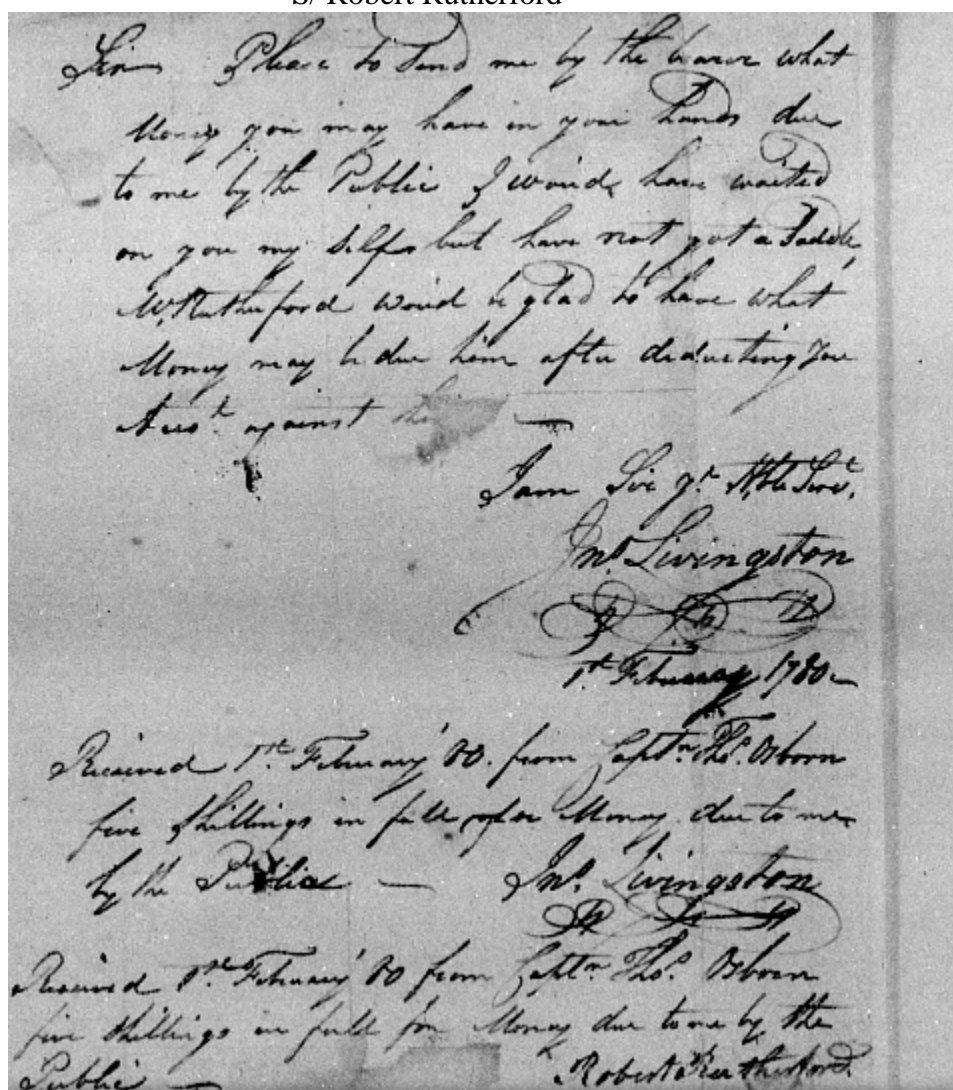 S/ Robert Rutherford
Sir Please to Send me by the bearer what
Money you may have in your hands due
to me by the Public I would have waited
on you my Self but have not got a Saddle,
Mr. Rutherford would be glad to have what
Money may be due him after deducting your
Accot. against
I am Sir yr. Hble Servt.
Jno. Livingston
1st. February 1780
Received 1st. February 80. from Captn. Thos. Osborn
five Shillings in full for Money due to me
by the Public — Jno. Livingston
Received 1st February 80 from Captn Thos. Osborn
five Shillings in full for Money due to me by the
Public — Robert Rutherford